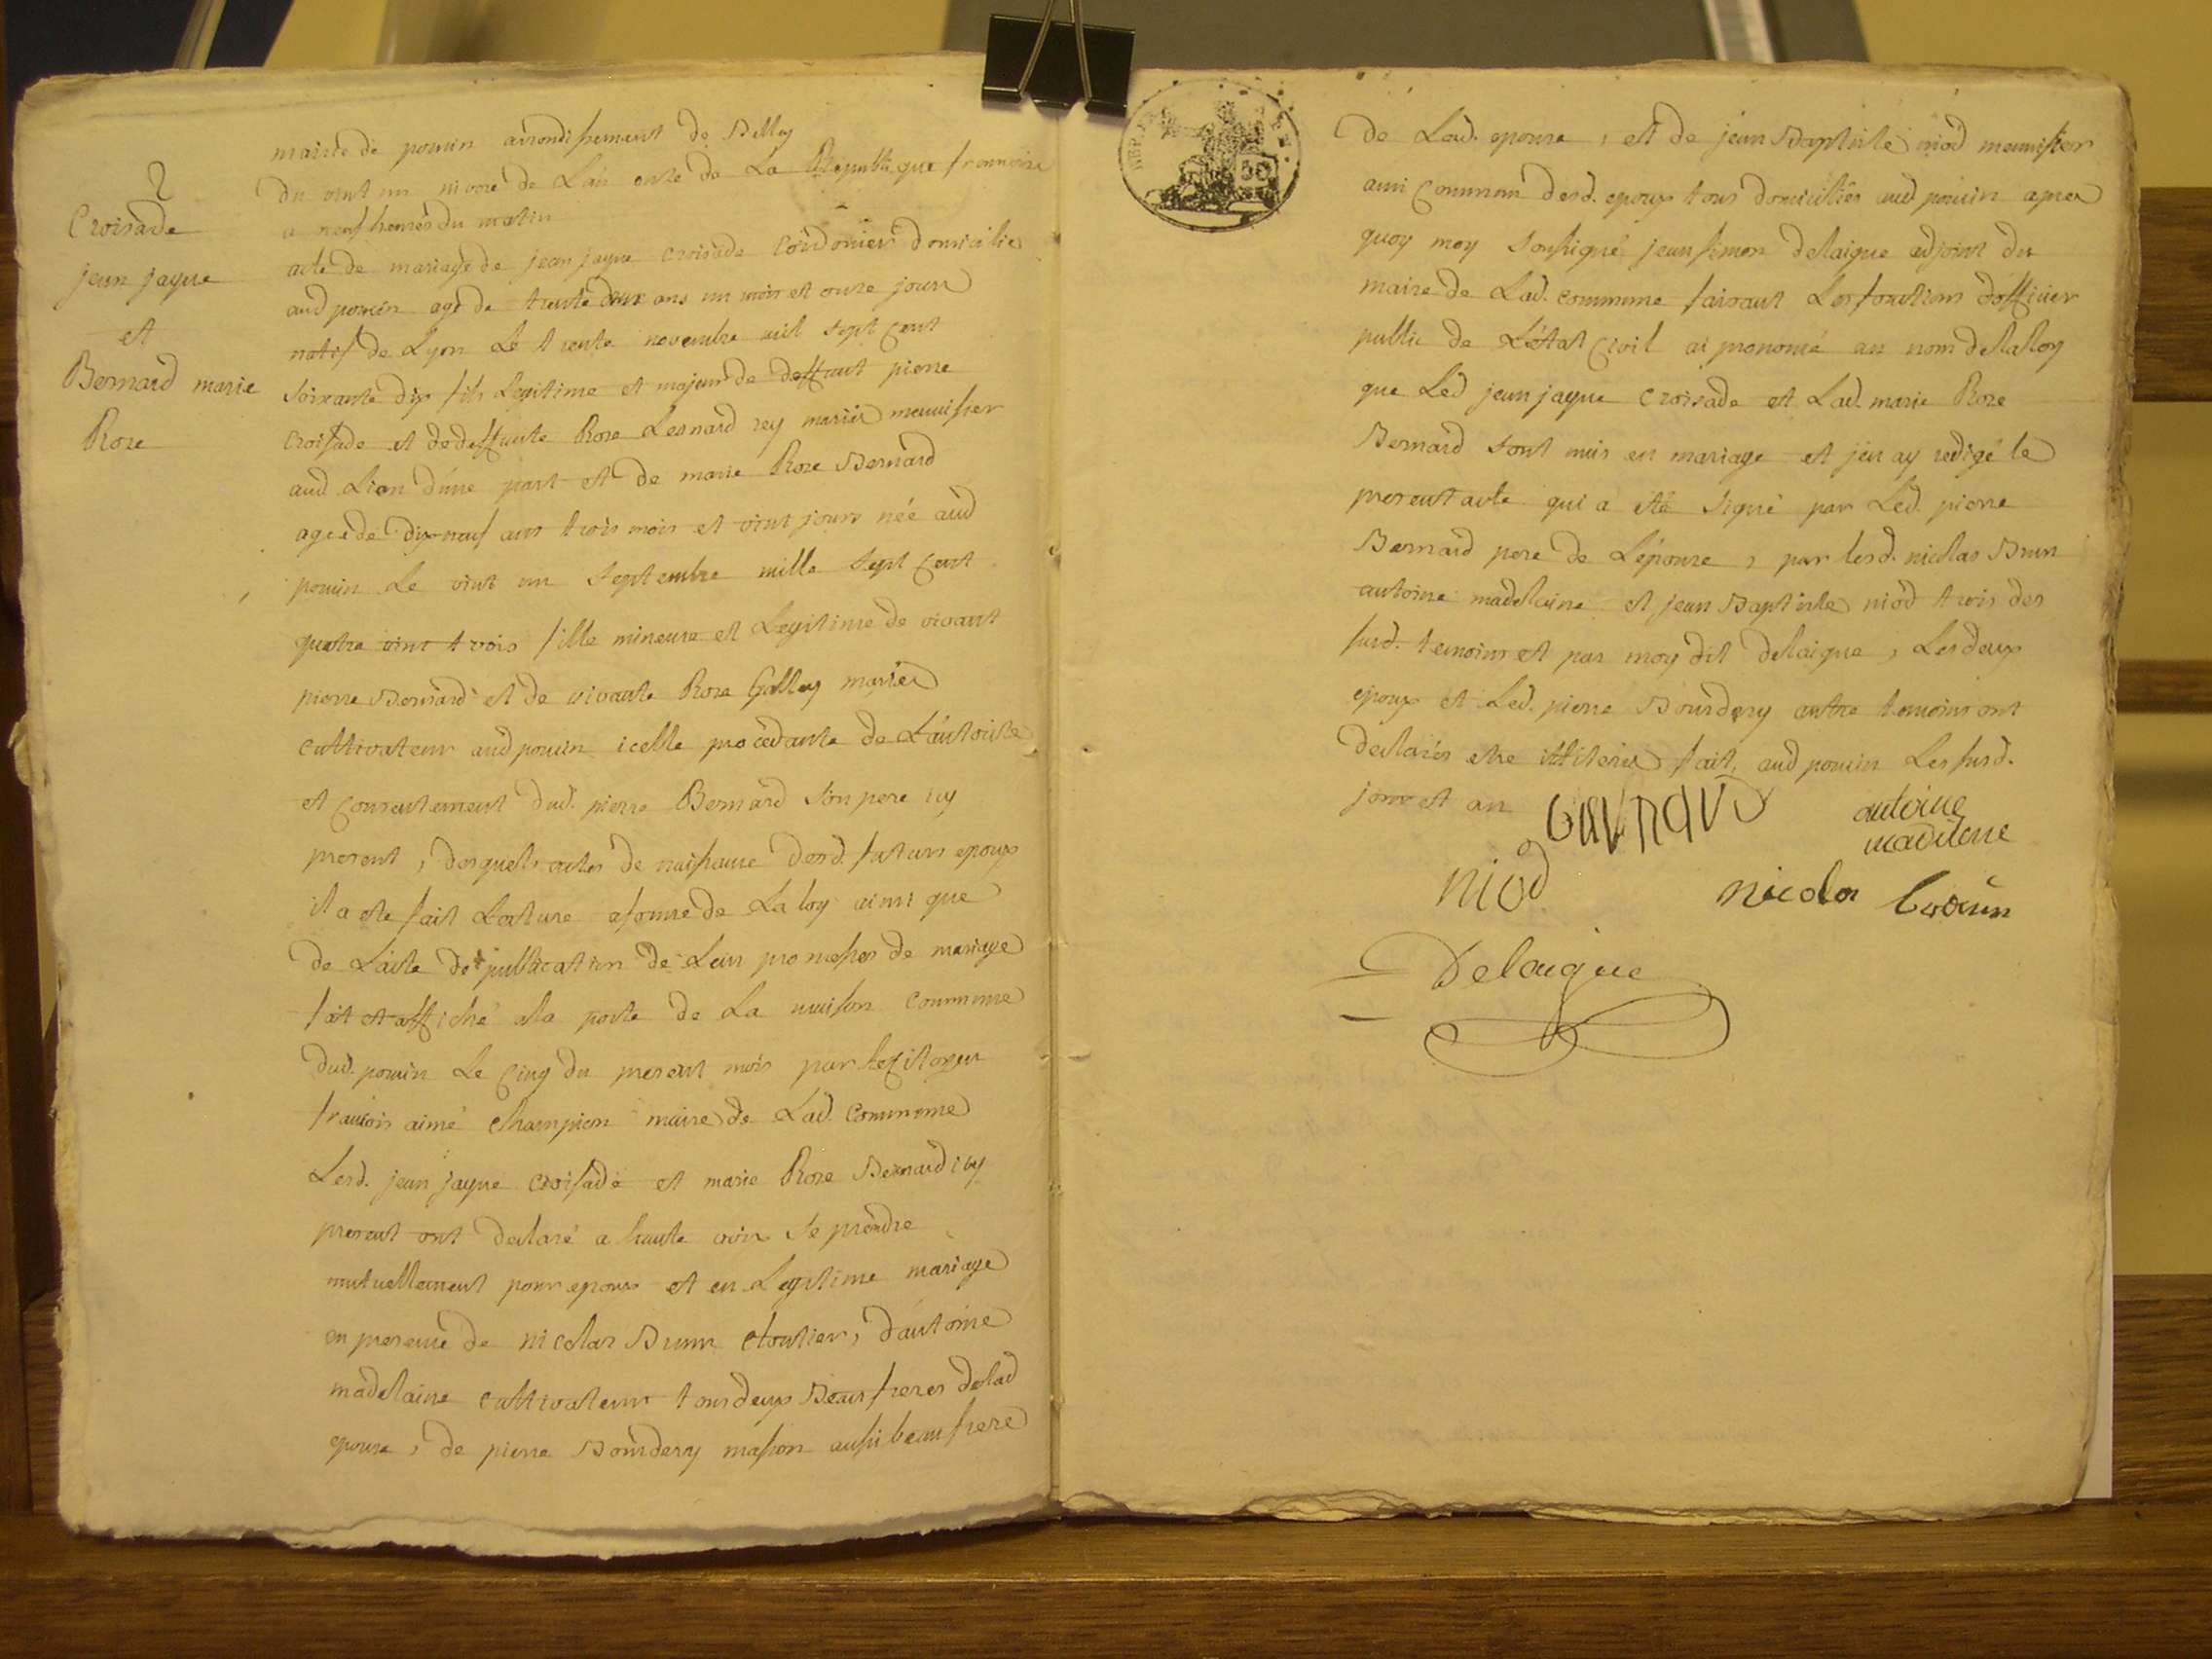 2
Croisade
jean jaque
et
Bernard marie
Roze
mairie de poncin arrondissement de Belley
du vint un nivose de L'an onze de La Republique francoise
a neuf heures du matin
acte de mariage de jean jaque croisade cordonier domicilié
aud poncin agé de trente deux ans un mois et onze jours
natif de Lyon Le trente novembre mil sept cent
soixante dix fils Legitime et majeur de deffunt pierre
croisade et de deffunte Roze Leonard rey mariés meunisier
aud Lion d'une part et de marie Roze Bernard
agée de dix neuf ans trois mois et vint jours née aud
poncin Le vint un septembre mille sept cent
quatre vint trois fille mineure et Legitime de vivant
pierre Bernard et de vivante Roze Galley mariés
cultivateur aud poncin icelle procedante de L'autorité
et consentement dud. pierre Bernard son pere icy
present, desquels actes de naissance desd. futurs epoux
il a eté fait Lecture a forme de La loy ainsi que
de L'acte de publication de Leur promesses de mariage
fait et affiché a la porte de La maison commune
dud. poncin Le cinq du present mois par le citoyen
francois aimé champion maire de Lad. commune
Lesd. jean jaque croisade et marie Roze Bernard icy
present ont declaré a haute voix se prendre
mutuellement pour epoux et en Legitime mariage
en presence de nicolas Brun cloutier, d'antoine
madelaine cultivateur tous deux Beaux freres de lad
epouse, de pierre Bourdery masson aussi beau frere
de Lad. epouse, et de jean Baptiste niod meunisier
ami commun desd. epoux tous domiciliés aud poncin apres
quoy moy soussigné jean simon delaigue adjoint du
maire de Lad. commune faisant Les fonctions d'officier
public de L'état civil ai prononcé au nom de la Loy
que Led jean jaque croisade et Lad. marie Roze
Bernard sont unis en mariage et j'en ay redigé le
present acte qui a eté signé par Led. pierre
Bernard pere de L'épouse, par lesd. nicolas Brun
antoine madelaine et jean Baptiste niod trois des
susd. temoins et par moy dit delaigue, Les deux
epoux et Led. pierre Bourdery autre temoins ont
declarés etre illiterés fait, aud poncin Les susd.
jour et an
antoine
madilene
niod
nicolas broun
Delaigue